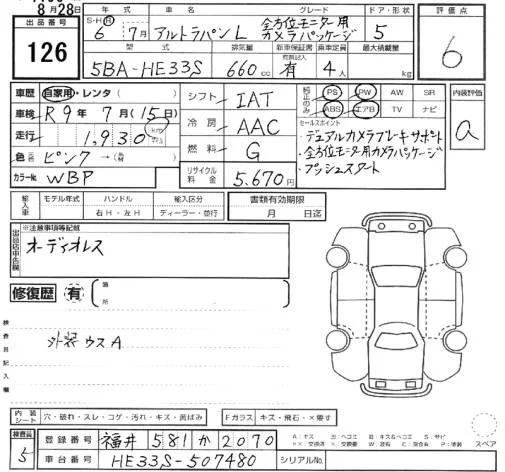 8月28日
出品番号
126
年式 車名 グレード ドア・形状 評価点
S・H・R 6年 7月 アルトラパン L 全方位モニター用カメラパッケージ 5 6
型式 排気量 新車保証書 乗車定員 最大積載量
有無記入
5BA-HE33S 660cc 有 4人 kg
車歴 自家用・レンタ( )
車検 R9年 7月(15日)
走行 1,930 km
色 ピンク→
カラーNo. WBP
シフト IAT
冷房 AAC
燃料 G
リサイクル料金 5,670円
純正のみ PS PW AW SR
ABS エアB TV ナビ
内装評価
a
セールスポイント
・デュアルカメラブレーキサポート
・全方位モニター用カメラパッケージ
・プッシュスタート
輸入車 モデル年式 ハンドル 輸入区分
右H・左H ディーラー・並行
書類有効期限
月 日迄
出品店申告欄
※注意事項等記載
オーディオレス
修復歴 有 箇所
検査員記入欄
外装 ウスA
内装シート 穴・破れ・スレ・コゲ・汚れ・キズ・黄ばみ
Fガラス キズ・飛石・×要す
スペア
検査員
5
登録番号 福井 581 か 2070
車台番号 HE33S-507480
シリアルNo.